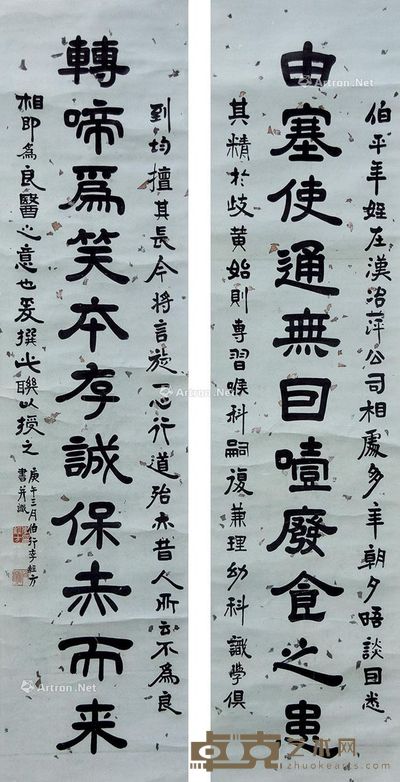 伯平年姪在漢冶萍公司相處多年朝夕晤談囙悉
由塞使通無囙噎廢食之患
其精於歧黃始則專習喉科嗣復兼理幼科識學俱
到均擅其長今將言旋一心行道殆亦昔人所云不為良
轉啼爲笑本存誠保赤而来
相即為良醫之意也爰撰此聯以授之
庚午三月伯行李経方
書并識
Artron.Net
Artron.Net
Artron.Net
Artron.Net
卓克艺术网
zhuokearts.com